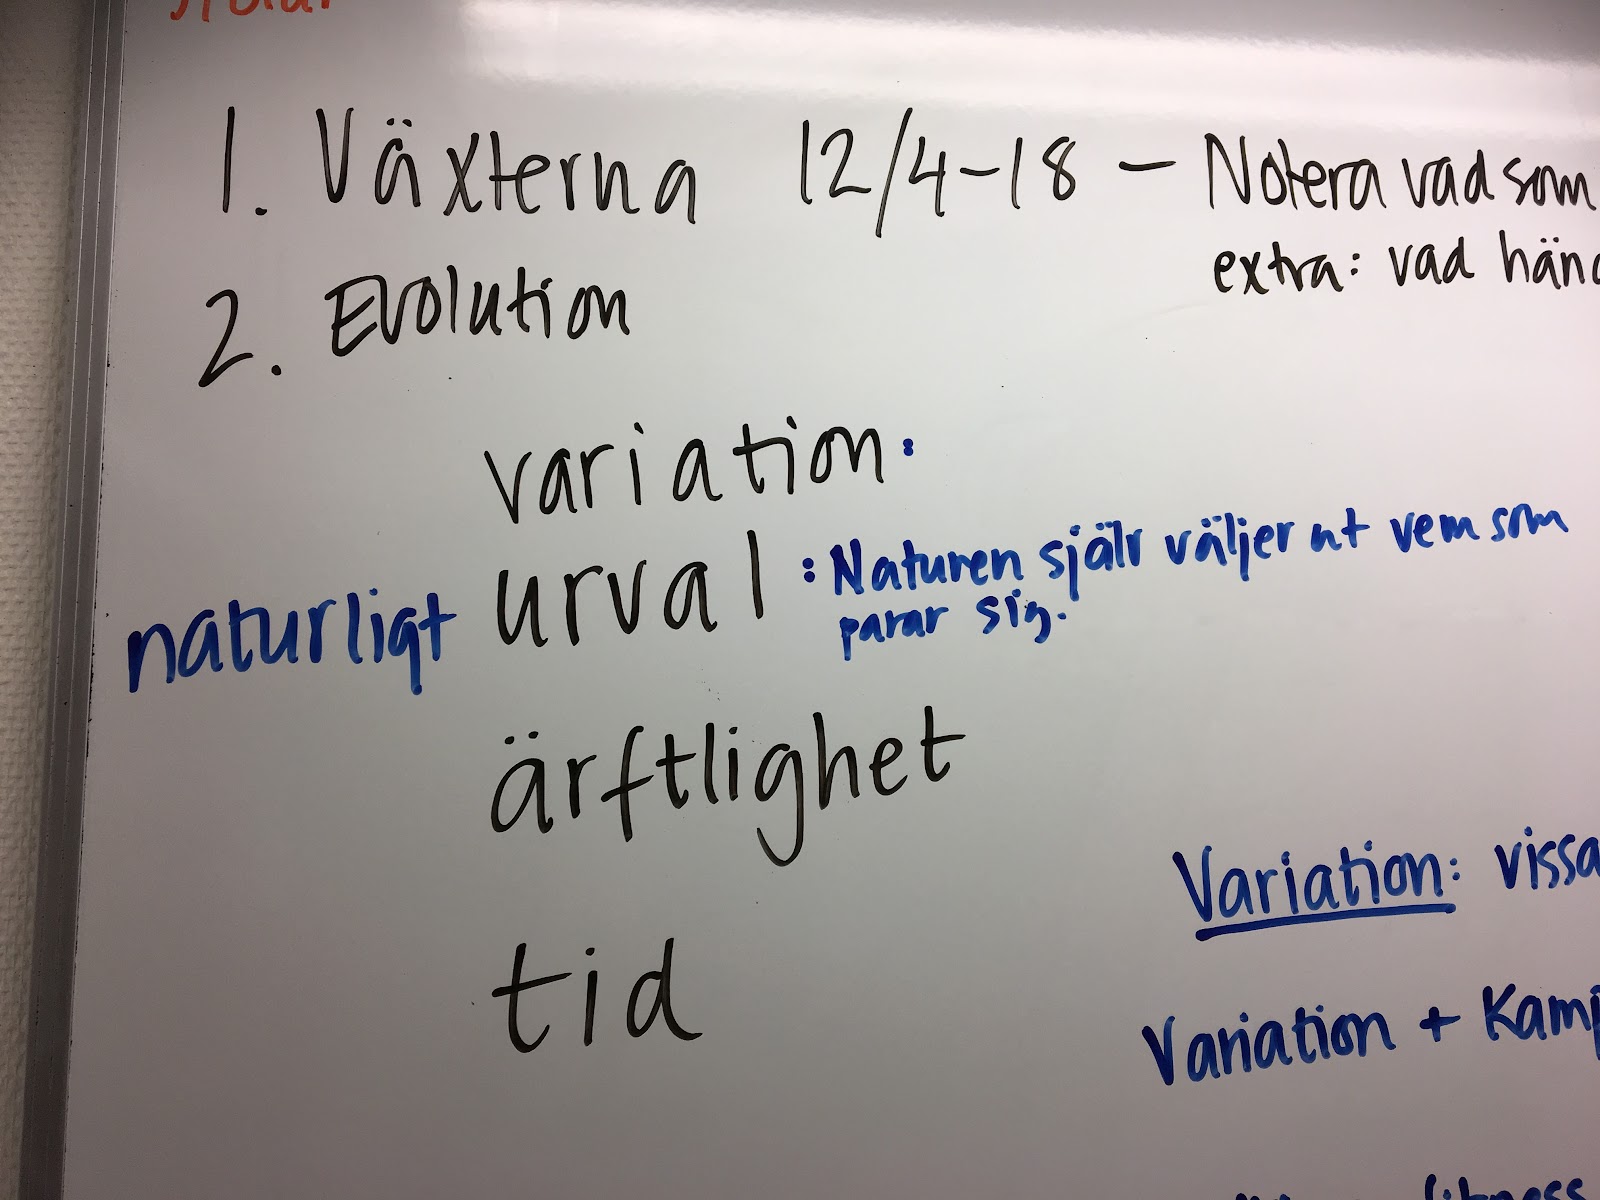 1. Växterna 12/4-18 – Notera vad som
extra: vad hän
2. Evolution
variation:
naturligt urval : Naturen själv väljer ut vem som
parar sig.
ärftlighet
Variation: vissa
tid
Variation + Kamp
fitness